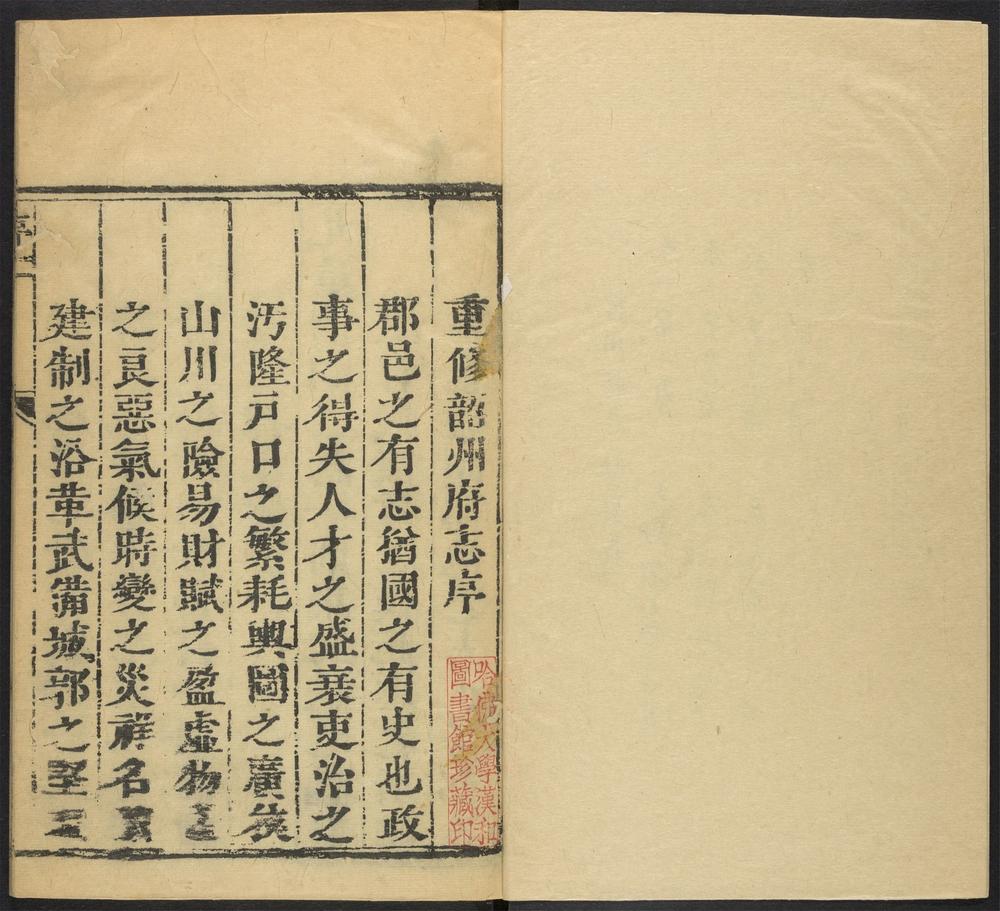 重修韶州府志序
郡邑之有志猶國之有史也政
事之得失人才之盛衰吏治之
汚隆戸口之繁耗輿圖之廣狹
山川之險易財賦之盈虛物
之良惡氣候時變之災祥名
建制之沿革武備城郭之堅
哈佛大學漢和
圖書館珍藏印
序